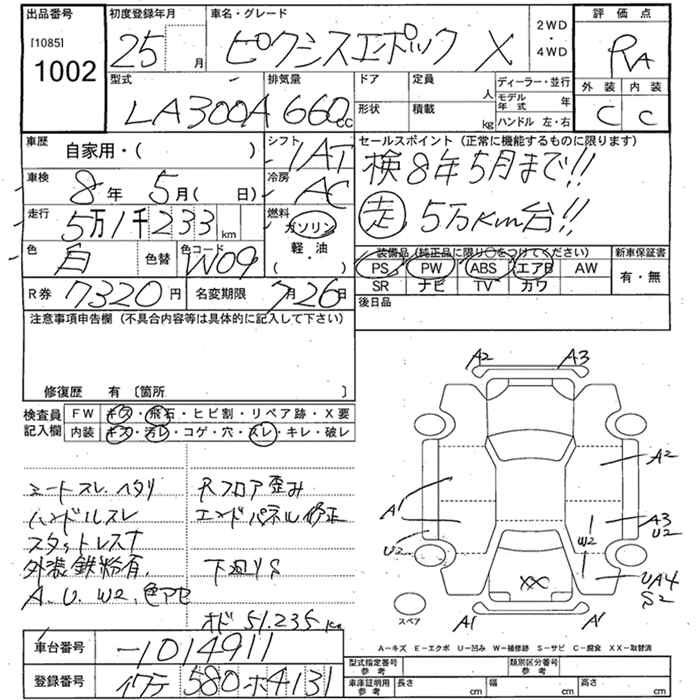 出品番号
[1085]
1002
初度登録年月
25 月
車名・グレード
ピクシスエポック X
2WD
・
4WD
評価点
RA
外装 内装
C C
型式
LA300A
排気量
660cc
ドア 定員 人
形状 積載 kg
ディーラー・並行
モデル年式 年
ハンドル 左・右
車歴
自家用・( )
シフト
IAT
車検
8年 5月( 日)
冷房
AC
走行
5万1千233km
燃料
ガソリン
軽・油
・( )
色
白
色替
色コード
W09
R券 7320円
名変期限 7月26日
セールスポイント(正常に機能するものに限ります)
検8年5月まで!!
走 5万Km台!!
装備品(純正品に限り○をつけてください)
PS PW ABS エアB AW
SR ナビ TV カワ
新車保証書
有・無
後日品
注意事項申告欄(不具合内容等は具体的に記入して下さい)
修復歴 有〔箇所 〕
検査員記入欄
FW キズ・飛石・ヒビ割・リペア跡・X要
内装 キズ・汚レ・コゲ・穴・スレ・キレ・破レ
シートスレ、ヘタリ
ハンドルスレ
スタットレスT
外装鉄粉有、
A、U、W2、色アセ
Rフロア歪み
エンドパネル修正
下廻りS
オド 51,235km
A2 A3
A2
A1
U2
A3
U2
W2
UA4
S2
XX
A1 A1
スペア
A-キズ E-エクボ U-凹み W-補修跡 S-サビ C-腐食 XX-取替済
車台番号
-1014911
登録番号
イワテ 580 ホ 4131
型式指定番号
参考
類別区分番号
参考
車庫証明用
参考
長さ cm
幅 cm
高さ cm